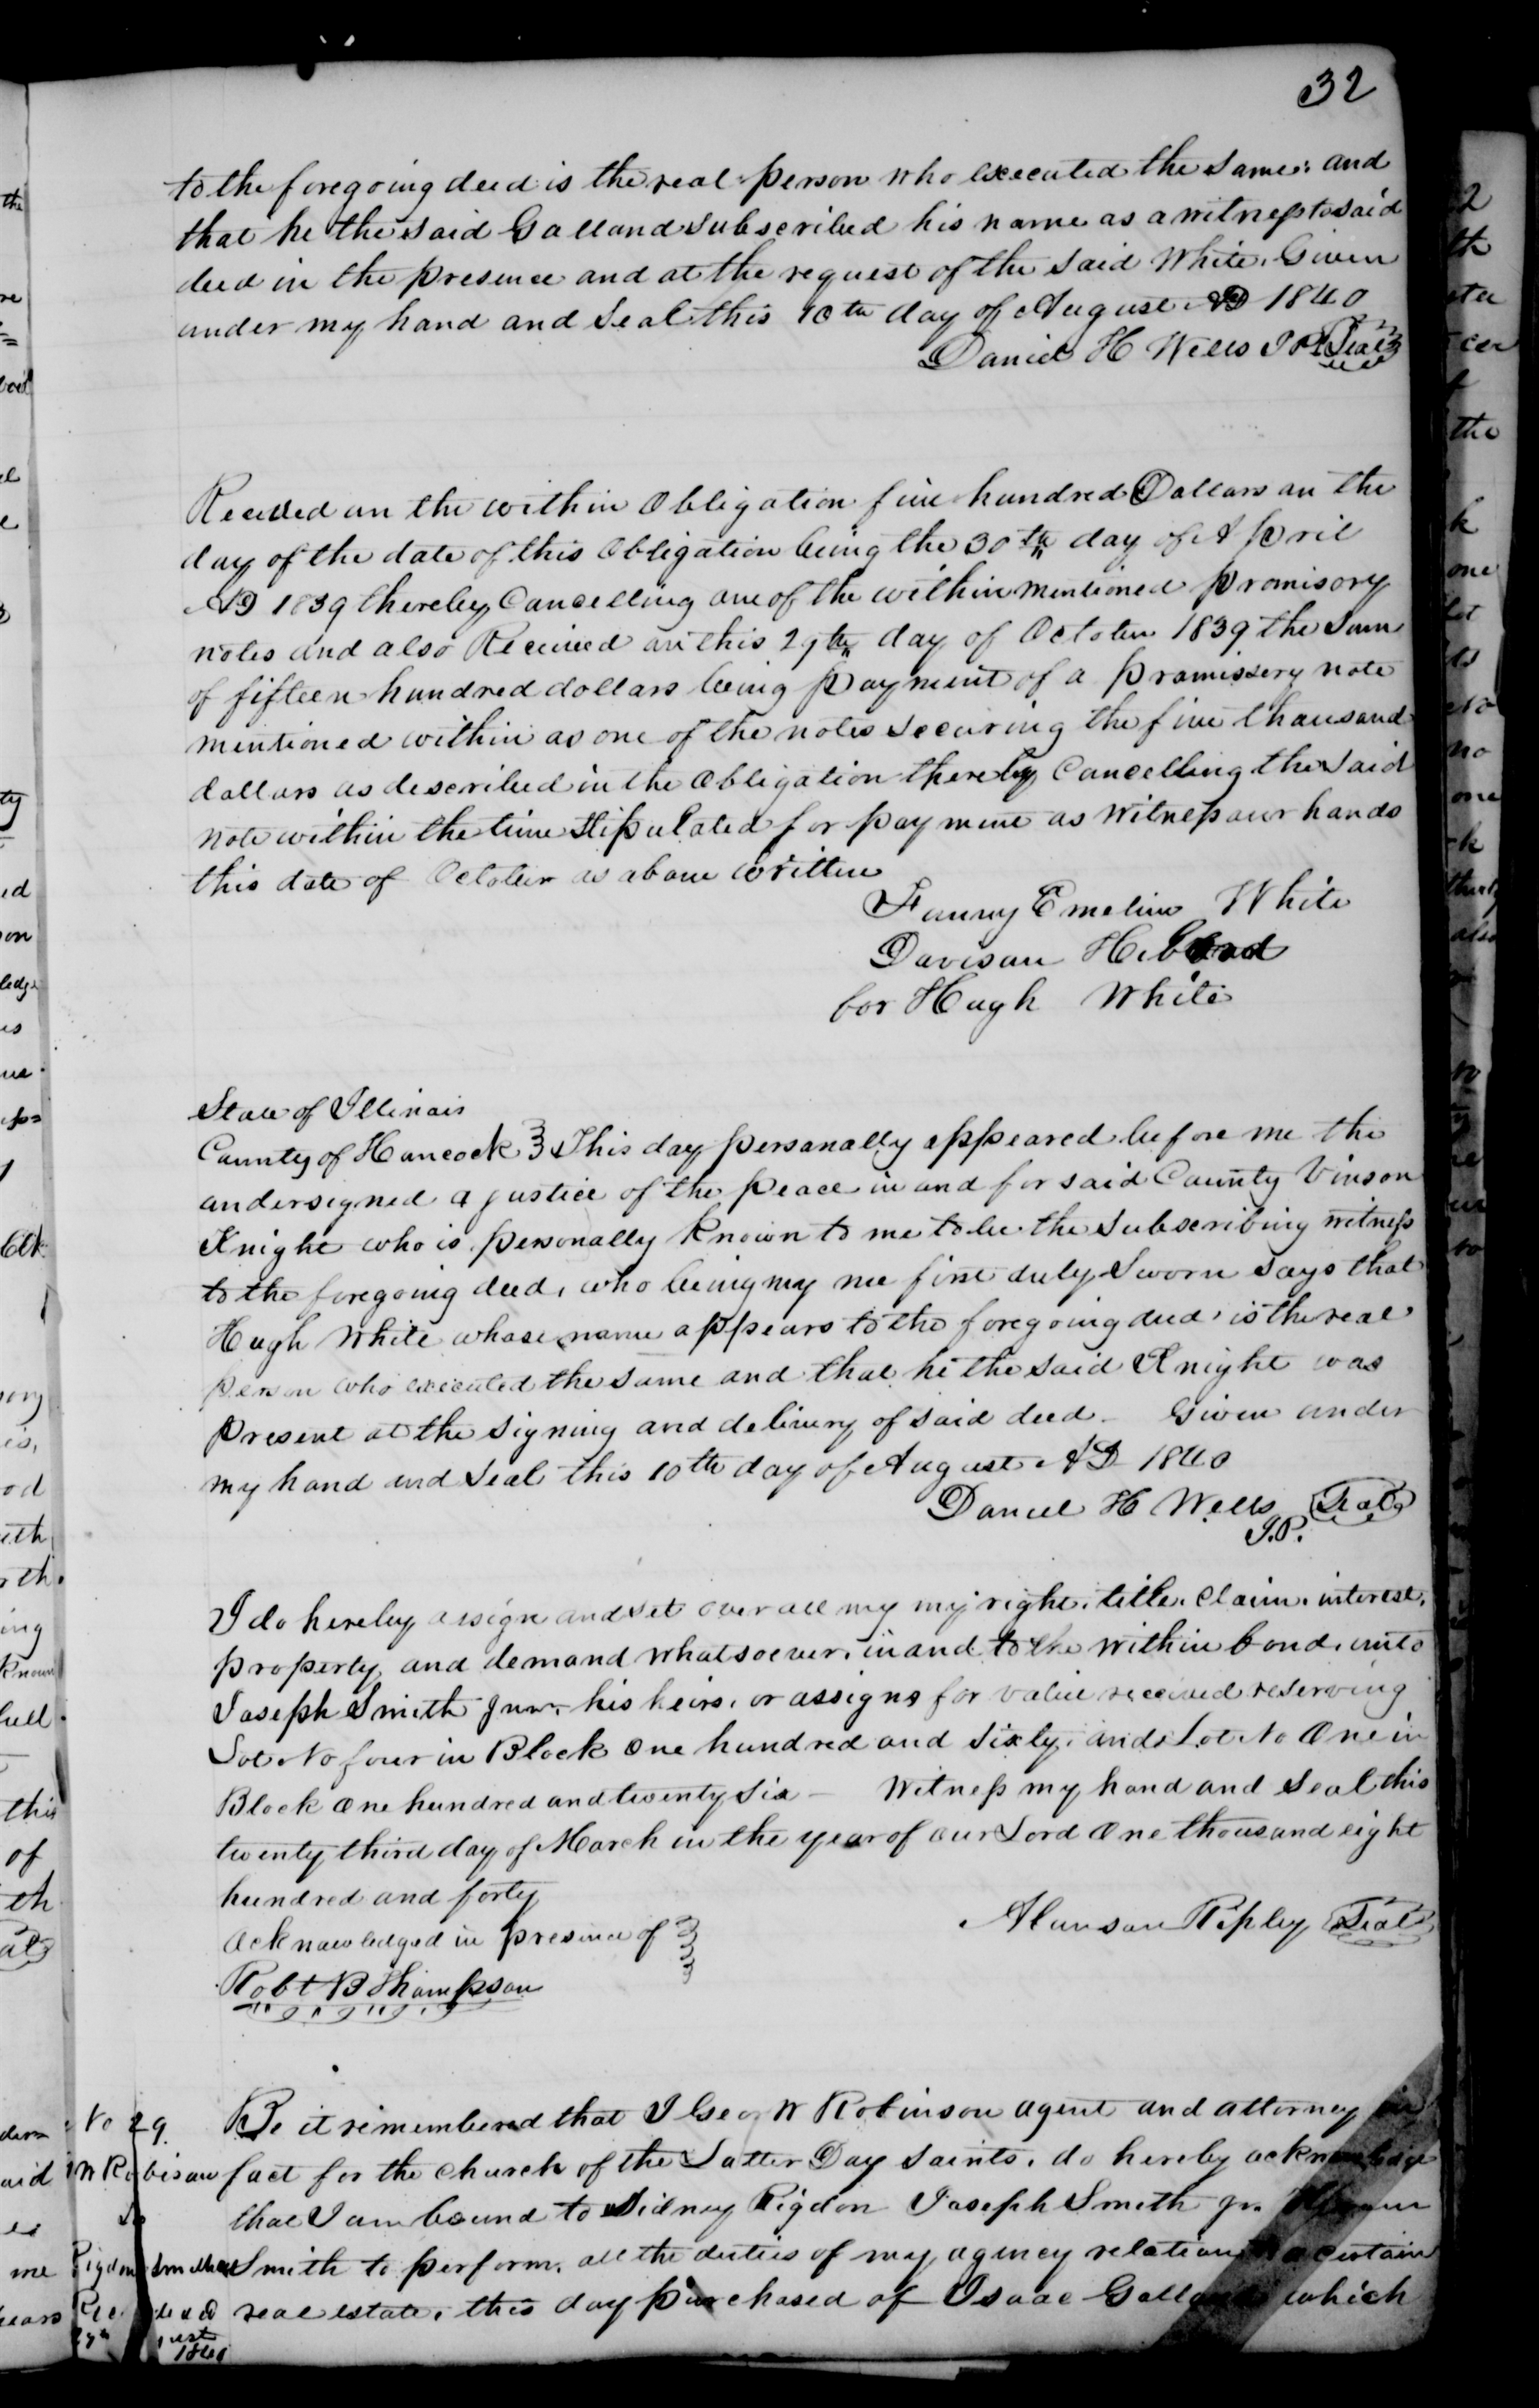 32
to the foregoing deed is the real person who executed the same: and
that he the said Galland subscribed his name as a witness to said
deed in the presence and at the request of the said White. Given
under my hand and seal this 10th day of August AD 1840
Daniel H Wells J P Seal
Received on the within Obligation five hundred Dollars on the
day of the date of this Obligation being the 30th day of April
AD 1839 thereby Cancelling one of the within mentioned promisory
notes and also Received on this 29th day of October 1839 the sum
of fifteen hundred dollars being payment of a promissery note
mentioned within as one of the notes securing the five thousand
dollars as described in the Obligation thereby Cancelling the said
note within the time stipulated for payment as witness our hands
this date of October as above written
Fanny Emeline White
Davison Hibbard
for Hugh White
State of Illinois
County of Hancock } This day personally appeared before me the
undersigned a justice of the peace in and for said County Vinson
Knight who is personally Known to me to be the subscribing witness
to the foregoing deed, who being my me first duly sworn says that
Hugh White whose name appears to the foregoing deed is the real
person who executed the same and that he the said Knight was
present at the signing and delivery of said deed - Given under
my hand and seal this 10th day of August AD 1840
Daniel H Wells Seal
J.P.
I do hereby assign and set over all my my right, title, claim, interest,
property and demand whatsoever, in and to the within bond, unto
Joseph Smith Junr. his heirs, or assigns for value received reserving
Lot No four in Block One hundred and Sixty, and Lot No One in
Block One hundred and twenty six - Witness my hand and seal this
twenty third day of March in the year of our Lord One thousand eight
hundred and forty
Alanson Ripley Seal
Acknowledged in presence of
Robt B Thompson
No 29. Be it remembered that I Geo W Robinson agent and attorney in
W Robison fact for the church of the Latter Day Saints, do hereby acknowledge
that I am bound to Sidney Rigdon Joseph Smith Jr. Hyrum
Rigdon Smith to perform, all the duties of my agency relation to a certain
real estate, this day purchased of Isaac Galland which
1840